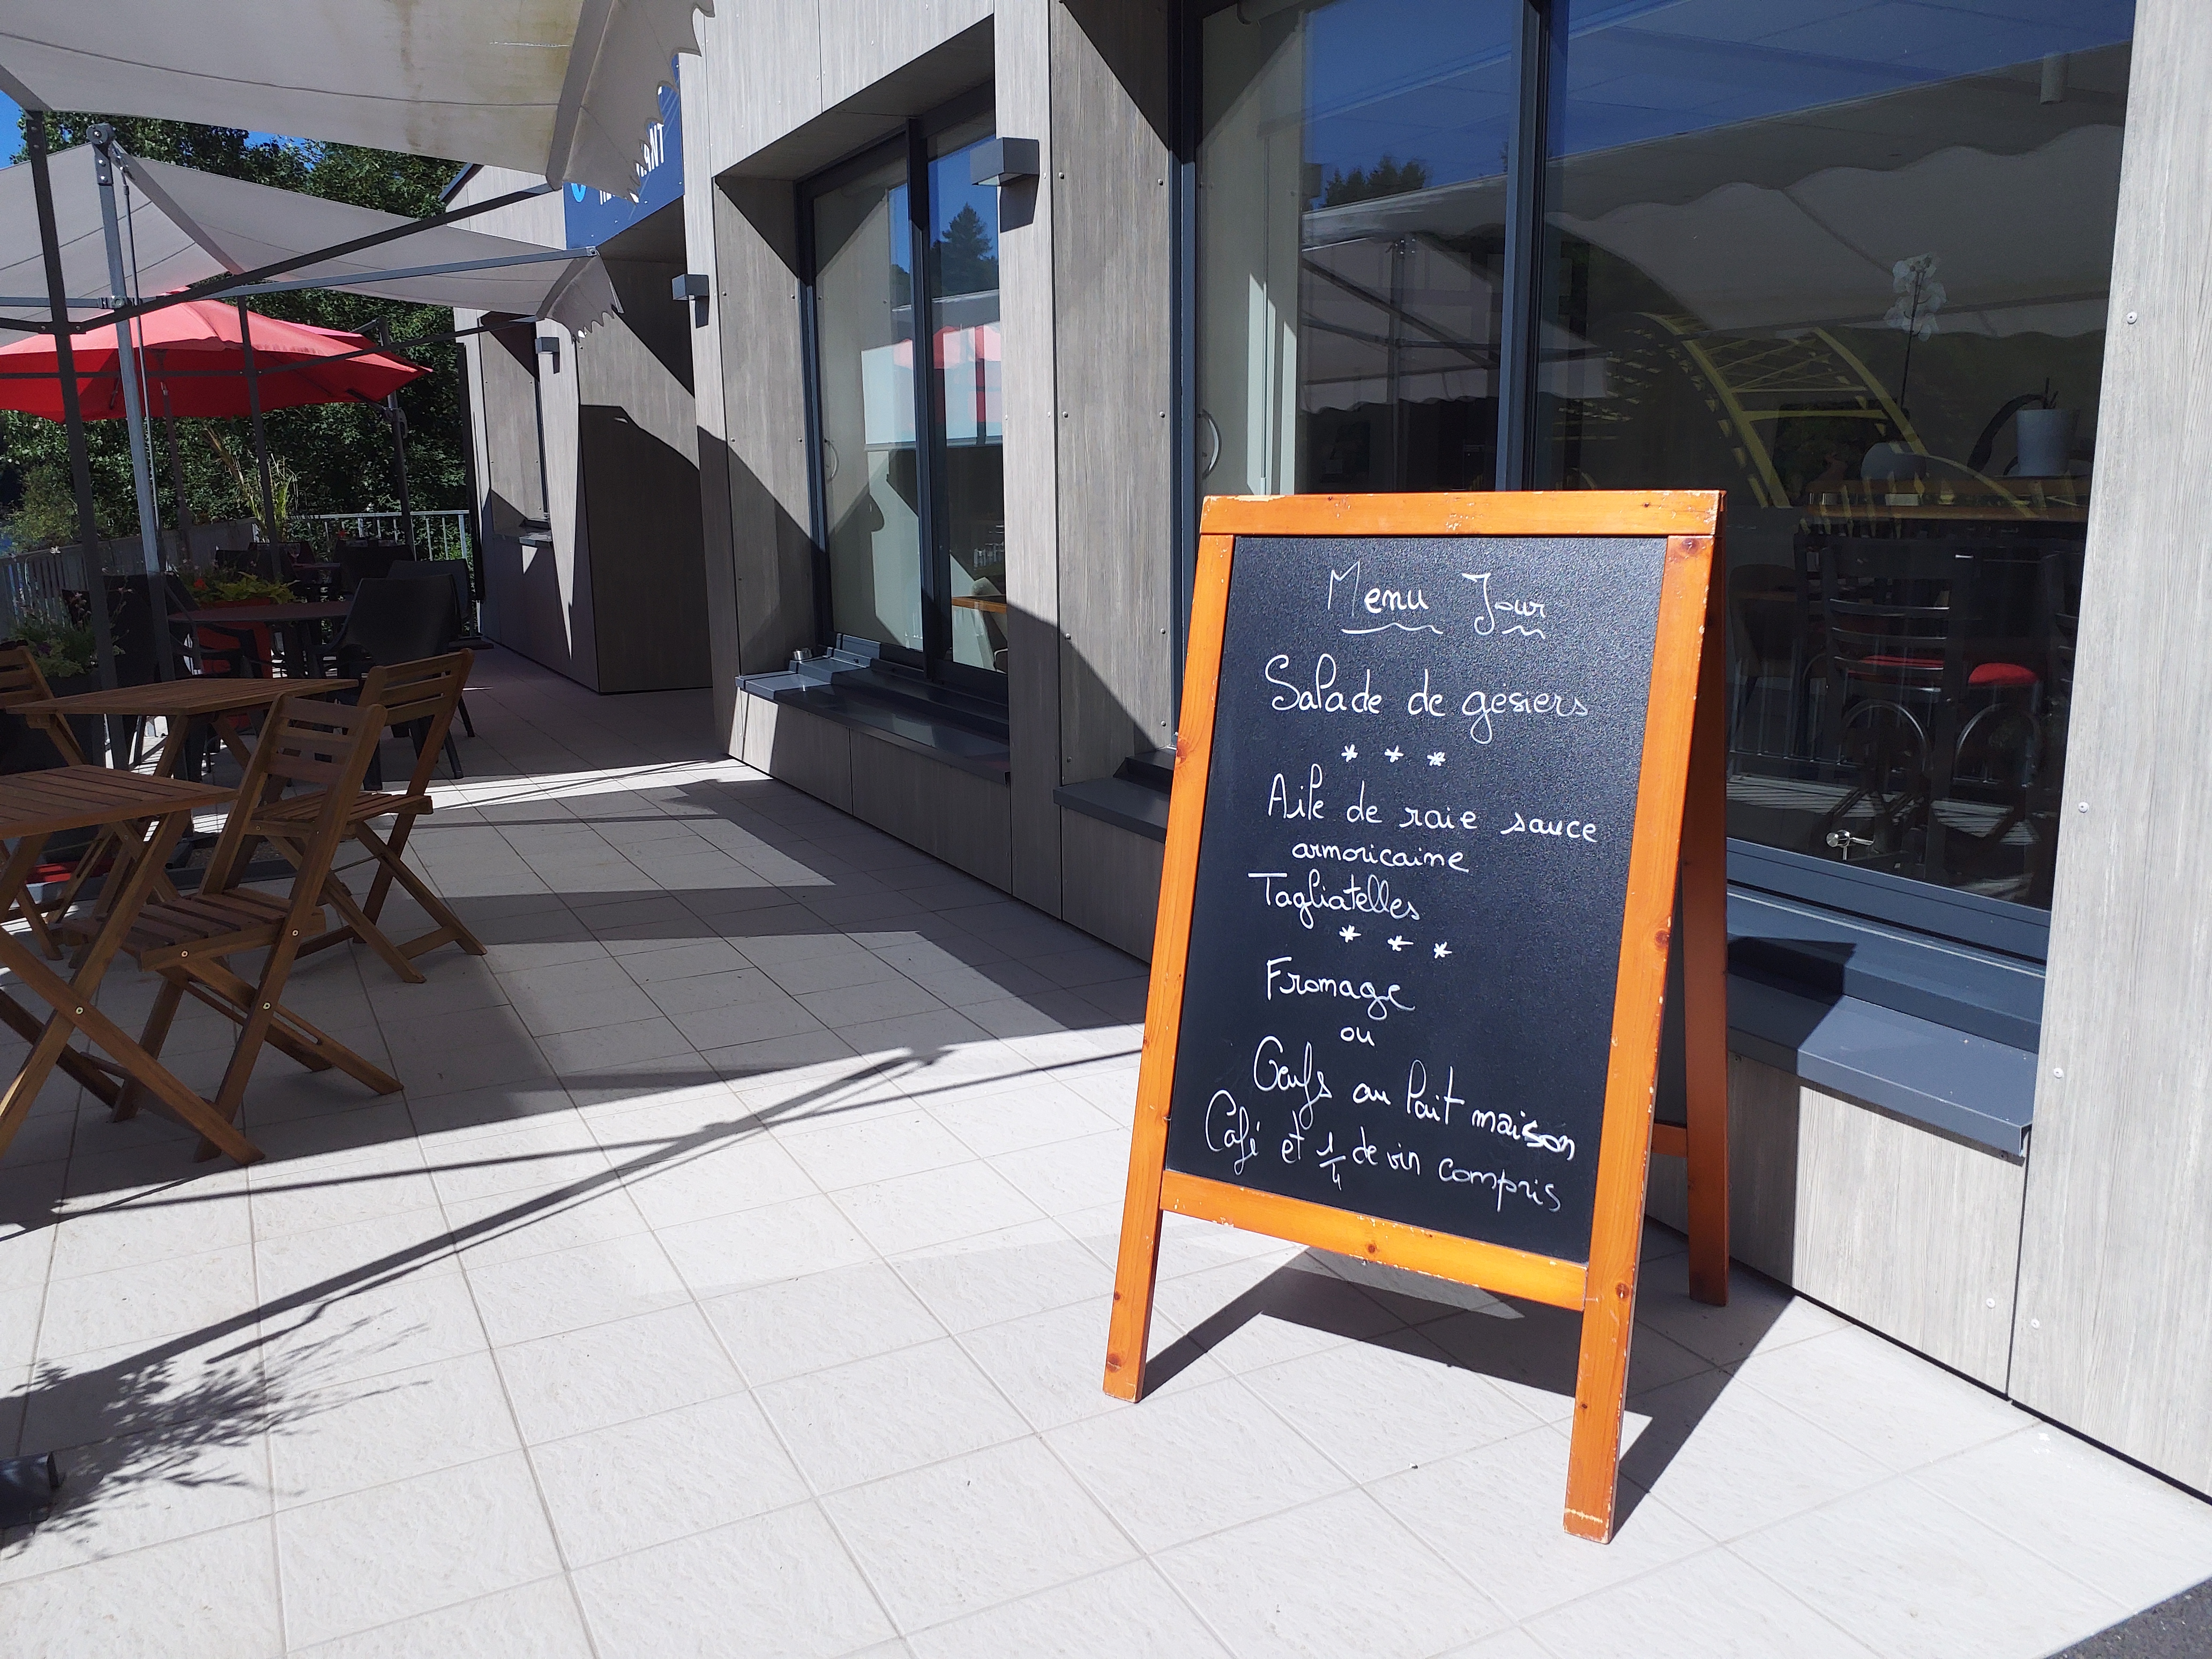 Menu Jour
Salade de gésiers
* * *
Aile de raie sauce
armoricaine
Tagliatelles
* * *
Fromage
ou
Oeufs au lait maison
Café et 1/4 de vin compris